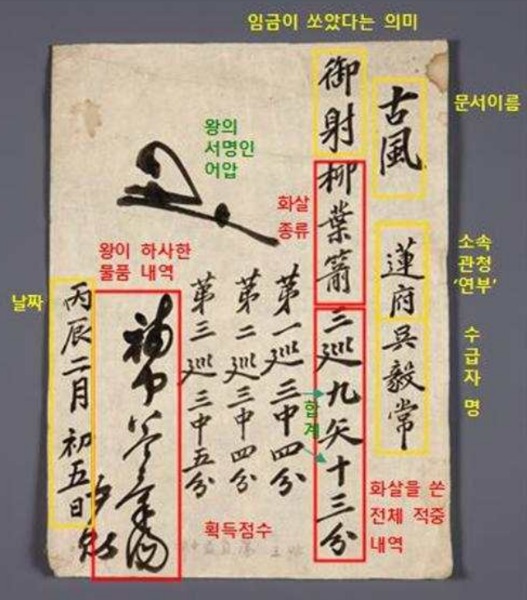 임금이 쏘았다는 의미
古風
문서이름
蓮府
소속
관청
'연부'
吳毅常
수급자 명
御射
柳葉箭
화살
종류
三巡九矢十三分
화살을 쏜
전체 적중
내역
합계
第一巡三中四分
第二巡三中四分
第三巡三中五分
획득점수
왕의
서명인
어압
왕이 하사한
물품 내역
날짜
丙辰二月初五日